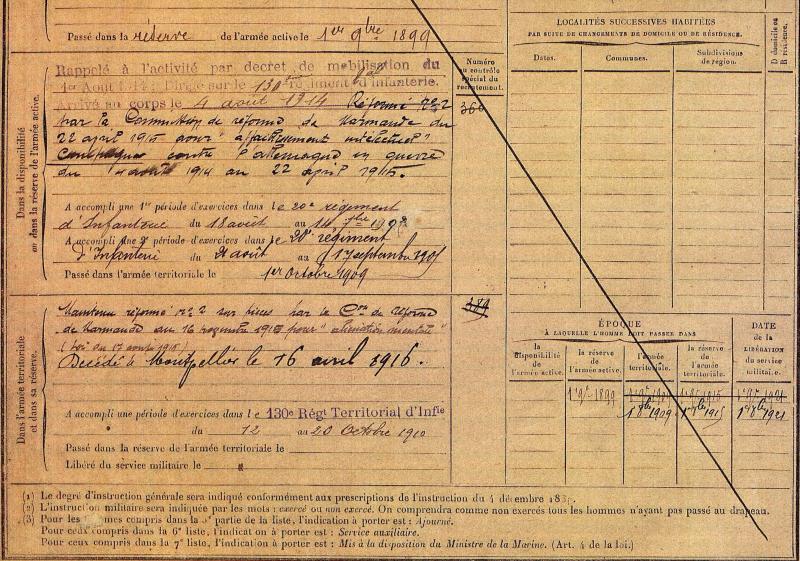 Passé dans la réserve de l'armée active le 1er 9bre 1899
Dans la disponibilité
ou dans la réserve de l'armée active.
Rappelé à l'activité par decret de mobilisation du
1er Aout 1914. Dirigé sur le 130e régiment d'infanterie.
Arrivé au corps le 4 août 1914 Réformé n° 2
par la Commission de réforme de Marmande du
22 avril 1915 pour "affaiblissement intellectuel"
Campagne contre l'allemagne en guerre
du 4 août 1914 au 22 avril 1915.
A accompli une 1re période d'exercices dans le 20e régiment
d'Infanterie du 18 août au 14 7bre
A accompli une 2e période d'exercices dans le 20e régiment
d'Infanterie du août au 17 septembre 1905
Passé dans l'armée territoriale le 1er Octobre 1909
Numéro
au contrôle
spécial du
recrutement.
Dans l'armée territoriale
et dans sa réserve.
Maintenu réformé n° 2 sur pièces par la Con de réforme
de Marmande du 16 novembre 1915 pour "aliénation mentale"
(Loi du 17 1915)
Décédé à Montpellier le 16 avril 1916.
A accompli une période d'exercices dans le 130e Régt Territorial d'Infie
du 12 au 20 Octobre 1910
Passé dans la réserve de l'armée territoriale le
Libéré du service militaire le
LOCALITÉS SUCCESSIVES HABITÉES
PAR SUITE DE CHANGEMENTS DE DOMICILE OU DE RÉSIDENCE.
Dates. Communes. Subdivisions
de région.
D domicile ou
R résidence.
ÉPOQUE
À LAQUELLE L'HOMME DOIT PASSER DANS
la
disponibilité
de l'armée active.
la réserve
de
l'armée active.
l'armée
territoriale.
la réserve
de l'armée
territoriale.
DATE
de la
LIBÉRATION
du service
militaire.
1909 1915 1921
(1) Le degré d'instruction générale sera indiqué conformément aux prescriptions de l'instruction du 4 décembre
(2) L'instruction militaire sera indiquée par les mots : exercé ou non exercé. On comprendra comme non exercés tous les hommes n'ayant pas passé au drapeau.
(3) Pour les compris dans la 5e partie de la liste, l'indication à porter est : Ajourné.
Pour ceux compris dans la 6e liste, l'indication à porter est : Service auxiliaire.
Pour ceux compris dans la 7e liste, l'indication à porter est : Mis à la disposition du Ministre de la Marine. (Art. 4 de la loi.)